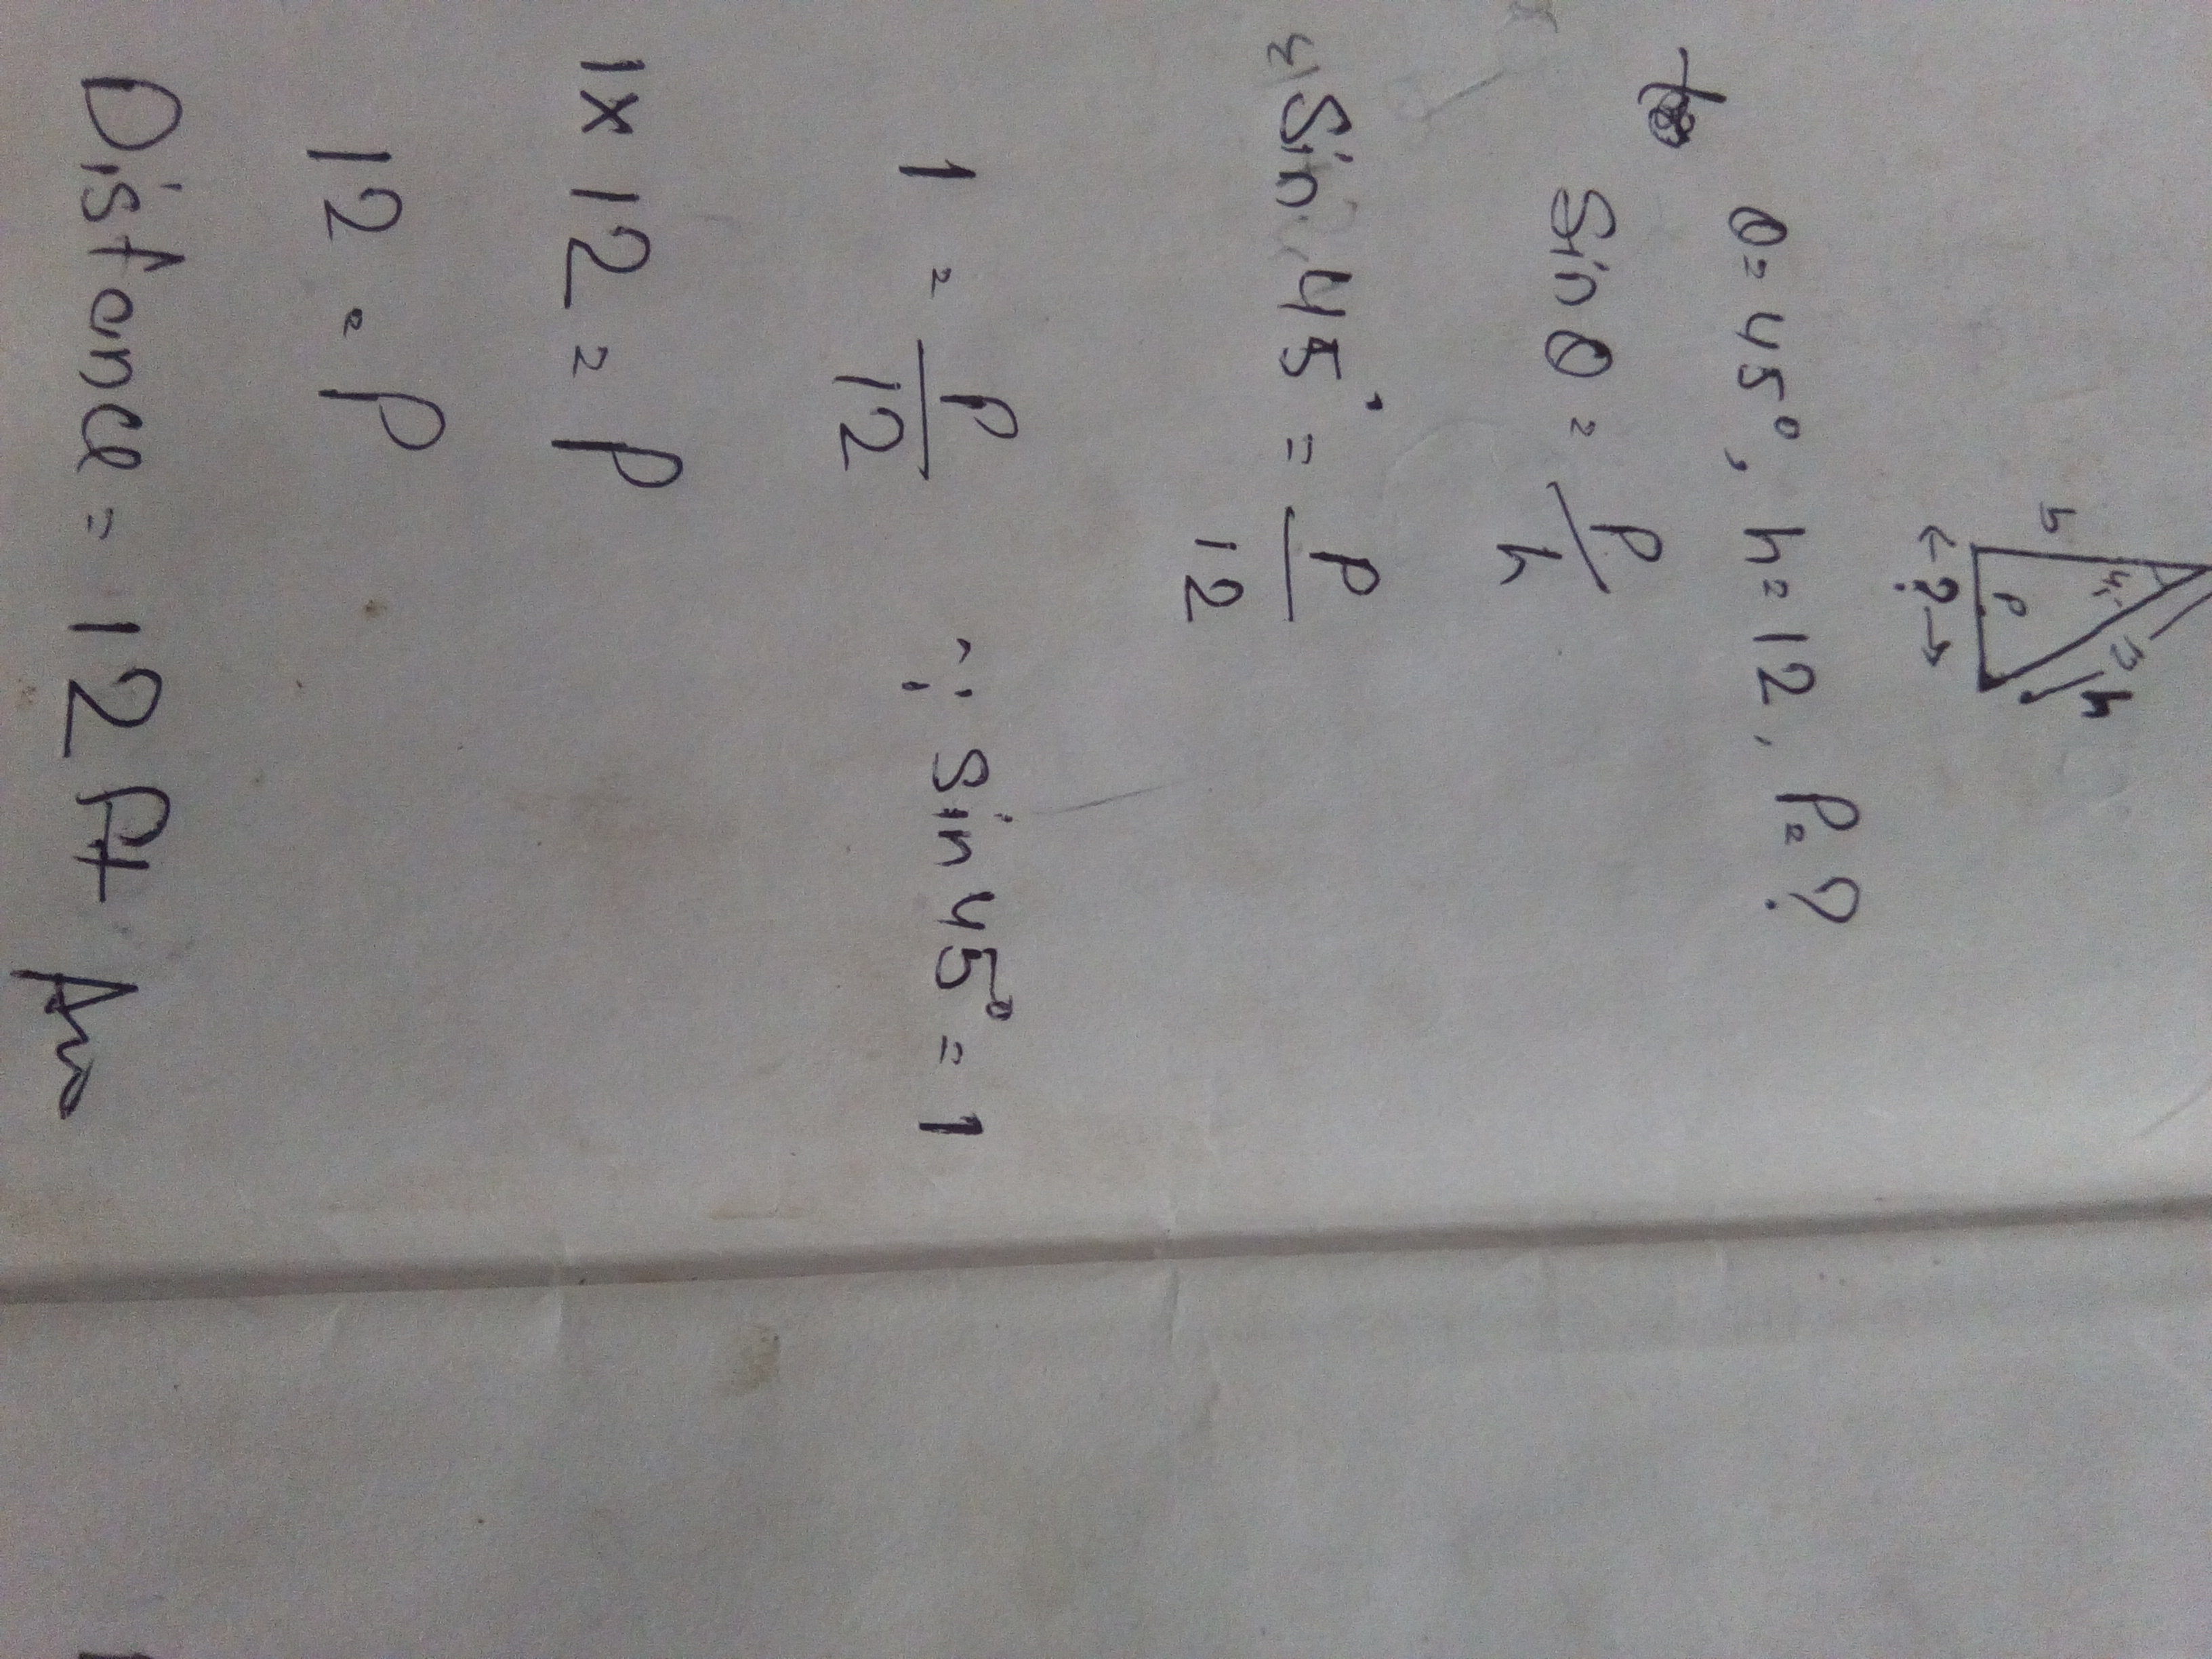 b 45 P 12 h
← ? →
θ = 45°, h = 12, P = ?
Sin θ = P/h
Sin 45° = P/12
1 = P/12 ∵ Sin 45° = 1
1 × 12 = P
12 = P
Distance = 12 ft Ans